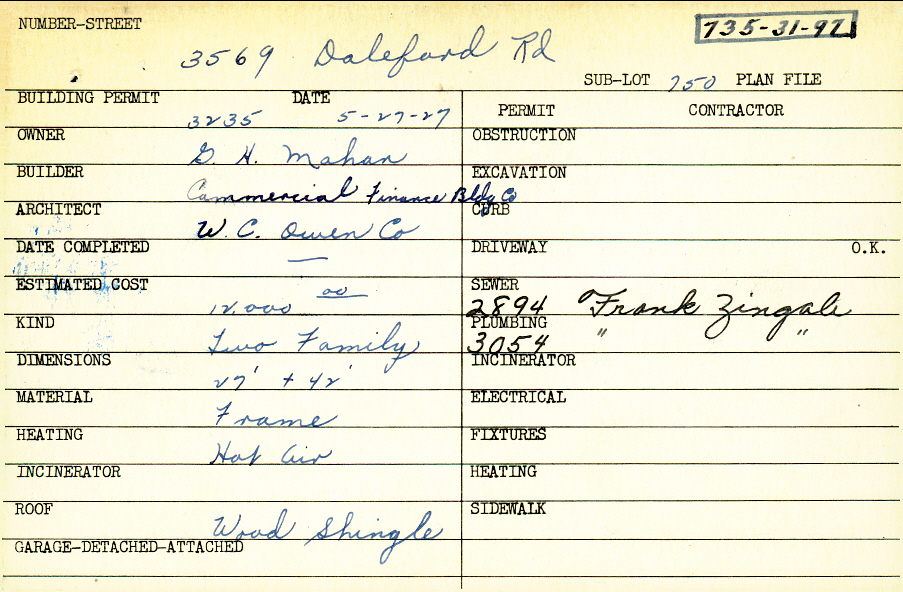 NUMBER-STREET 735-31-97
3569 Daleford Rd
SUB-LOT 750 PLAN FILE
BUILDING PERMIT DATE PERMIT CONTRACTOR
3235 5-27-27
OWNER G. H. Mahan OBSTRUCTION
BUILDER Commercial Finance Bldg Co EXCAVATION
ARCHITECT W. C. Owen Co CURB
DATE COMPLETED — DRIVEWAY O.K.
ESTIMATED COST 12,000 00 SEWER 2894 Frank Zingale
KIND Two Family PLUMBING 3054 " "
DIMENSIONS 27' + 42' INCINERATOR
MATERIAL Frame ELECTRICAL
HEATING Hot Air FIXTURES
INCINERATOR HEATING
ROOF Wood Shingle SIDEWALK
GARAGE-DETACHED-ATTACHED